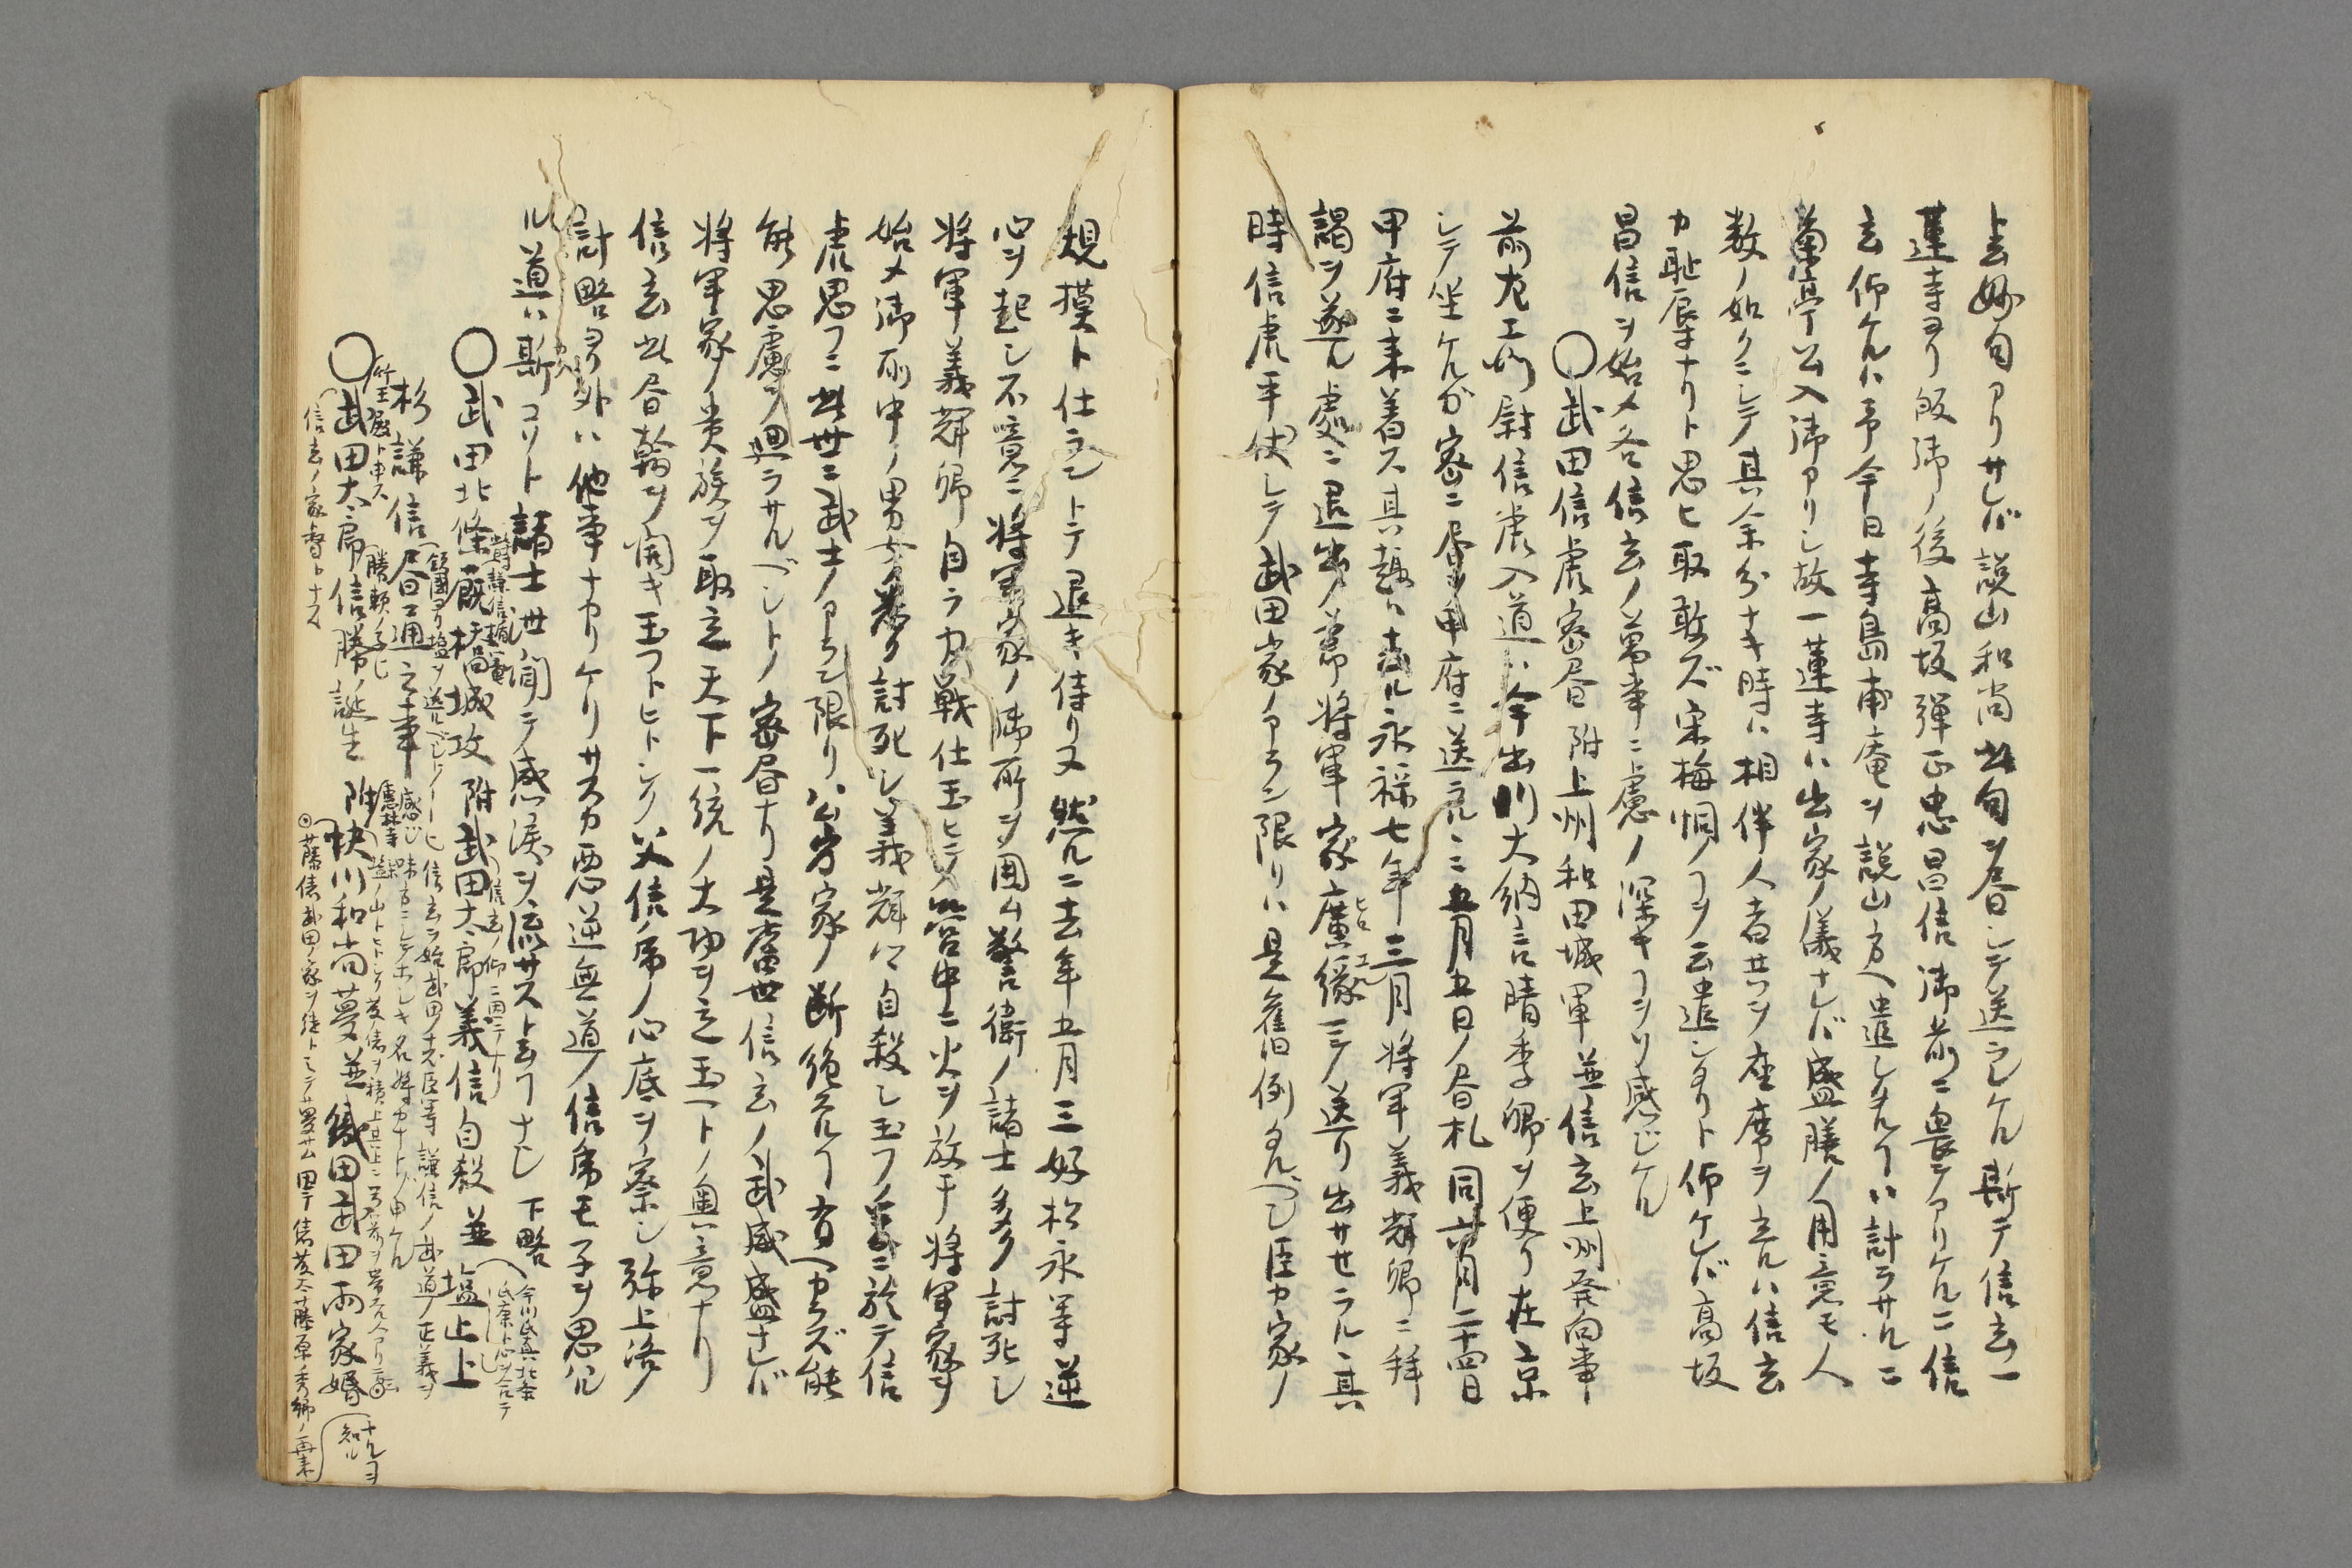 ト云妙句アリサレバ説山和尚此句ヲ書シテ送ラレケル斯テ信玄一
蓮寺ヨリ皈御ノ後高坂弾正忠昌信御前ニ畏テアリケルニ信
玄仰ケルハ予今日寺島甫庵ヲ説山方ヘ遣シタルヿハ計ラサルニ
菊亭公入御アリシ故一蓮寺ハ出家ノ儀ナレバ盛膳ノ用意モ人
数ノ如クニシテ其余分ナキ時ハ相伴人者共ヲ座席ヲ立ルハ信玄
カ恥辱ナリト思ヒ取敢ズ宋梅洞ノヿヲ云遣シタリト仰ケレバ高坂
昌信ヲ始メ各信玄ノ萬事ニ慮ノ深キヿヲソ感ジケル
〇武田信虎密書 附上州和田城軍並信玄上州発向事
前左エ門尉信虎入道ハ今出川大納言晴季卿ヲ便リ在京
シテ坐ケルガ密ニ書ヲ甲府ニ送ラルニ五月五日ノ書札同六月二十四日
甲府ニ来着ス其趣ハ去ル永禄七年三月将軍義輝卿ニ拝
謁ヲ遂ル處ニ退出ノ節将軍家廣縁ニテ送リ出サセラル其
時信虎平伏シテ武田家ノアラン限リハ是舊例タルベシ臣カ家ノ
規摸ト仕ラントテ退キ侍リ又然ルニ去年五月三好松永等逆
心ヲ起シ不意ニ将軍家ノ御所ヲ圍ム警衛ノ諸士多ク討死シ
将軍義輝卿自ラ力戦仕玉ヒテ營中ニ火ヲ放チ将軍家ヲ
始メ御所中ノ男女悉ク討死シ義輝公自殺シ玉フ是ニ於テ信
虎思フニ此世ニ武士ノアラン限リ公方家ノ断絶スルヿ有ヘカラズ能
能思慮ヲ廻ラサルベシトノ密書ナリ是當世信玄ノ武威盛ナレバ
将軍家ノ貴族ヲ取立天下一統ノ大功ヲ立玉ヘトノ奥意ナリ
信玄此書翰ヲ開キ玉フトヒトシク父信虎ノ心底ヲ察シ弥上洛ノ
計略ヨリ外ハ他事ナカリケリサスカ悪逆無道ノ信虎モ子ヲ思ハル
ル道ハ斯コソト諸士世ニ聞テ感涙ヲ流サスト云フナシ 下略
〇武田北條厩橋城攻 附武田太郎義信自殺並塩止上
今川氏真北条
氏康ト心ヲ合テ
信玄ノ仰ニ因テナリ
杉謙信書通之事
領國ヨリ塩ヲ送ルベシトノ
〇武田太郎信勝誕生 附快川和尚夢並織田武田両家婚
竹王殿ト申ス
勝頼ノ子也
信玄ノ家督トナス
惠林寺
ナルヿヲ
知ル